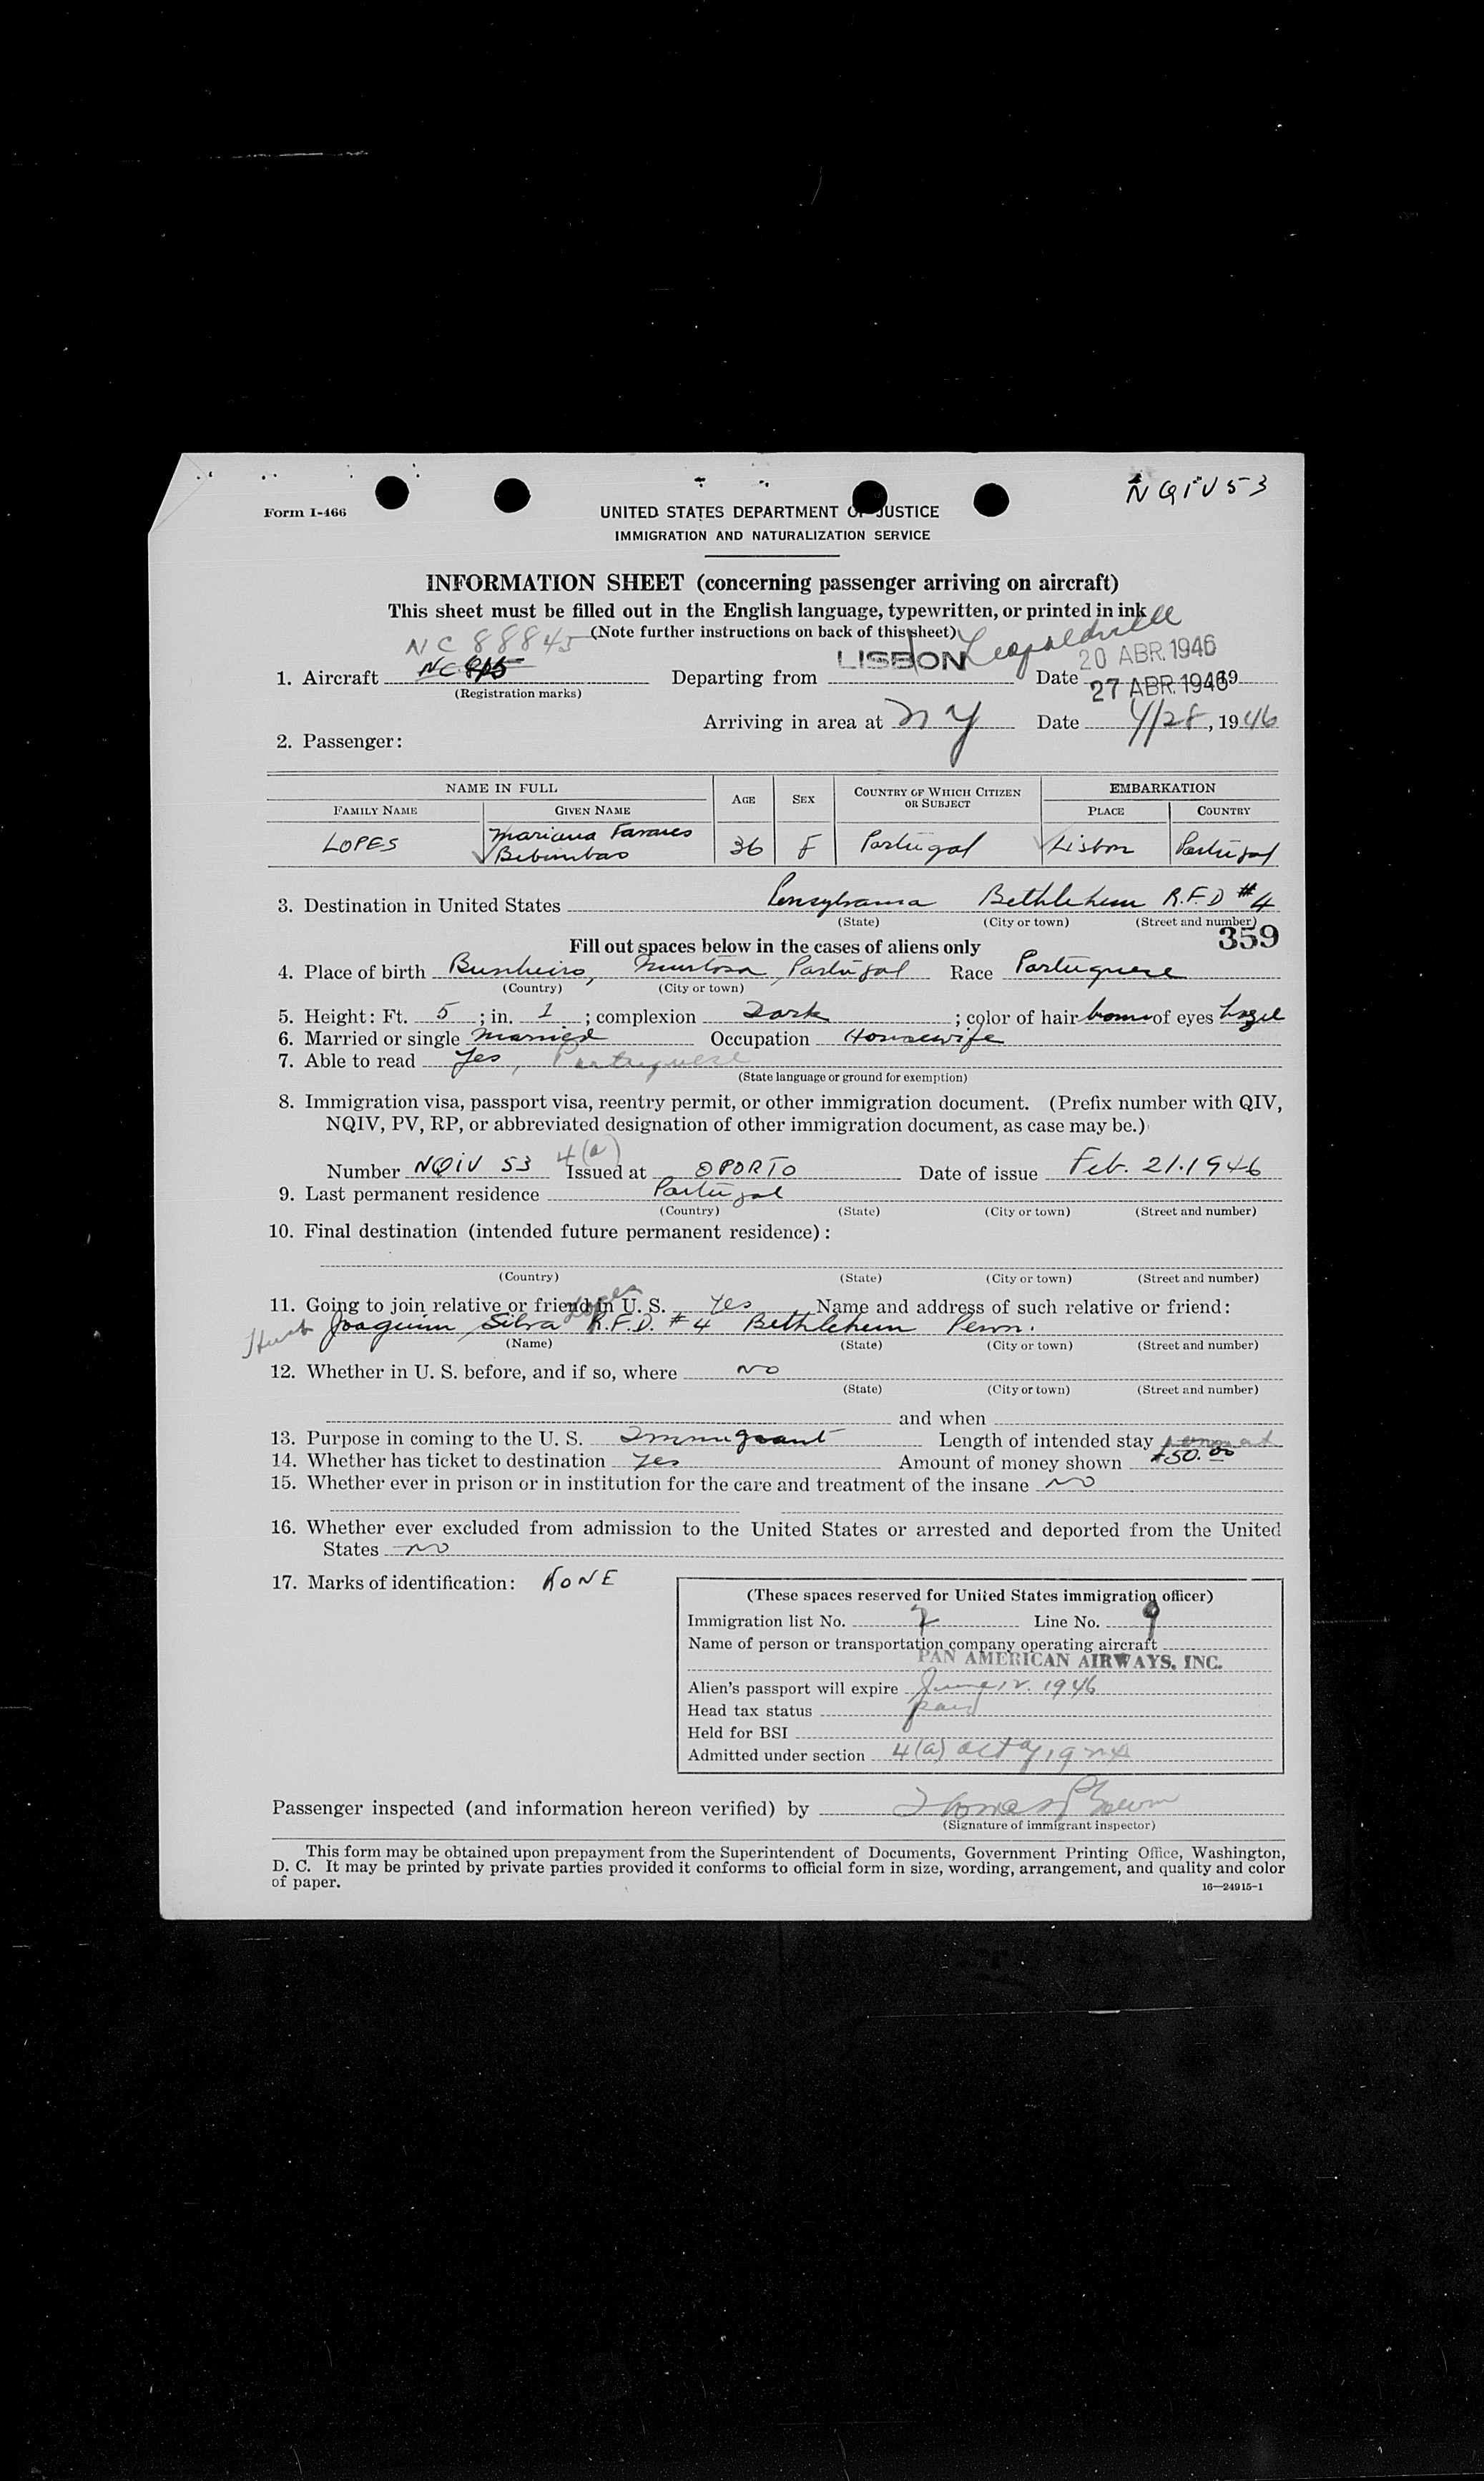 NQIV 53
Form I-466
UNITED STATES DEPARTMENT OF JUSTICE
IMMIGRATION AND NATURALIZATION SERVICE
INFORMATION SHEET (concerning passenger arriving on aircraft)
This sheet must be filled out in the English language, typewritten, or printed in ink
(Note further instructions on back of this sheet)
NC 88845 Leopoldville 20 ABR. 1946
1. Aircraft NC Departing from LISBON Date 27 ABR. 1946 19
(Registration marks)
Arriving in area at NY Date 4/28, 1946
2. Passenger:
NAME IN FULL AGE SEX COUNTRY OF WHICH CITIZEN OR SUBJECT EMBARKATION
FAMILY NAME GIVEN NAME PLACE COUNTRY
LOPES Mariana Tavares 36 F Portugal Lisbon Portugal
3. Destination in United States Pensylvania Bethlehem R.F.D #4
(State) (City or town) (Street and number)
359
Fill out spaces below in the cases of aliens only
4. Place of birth Bunheiro, Murtosa, Portugal Race Portuguese
(Country) (City or town)
5. Height: Ft. 5 ; in. 1 ; complexion Dark ; color of hair of eyes hazel
6. Married or single Married Occupation Housewife
7. Able to read Yes, Portuguese
(State language or ground for exemption)
8. Immigration visa, passport visa, reentry permit, or other immigration document. (Prefix number with QIV,
NQIV, PV, RP, or abbreviated designation of other immigration document, as case may be.)
Number NQIV 53 4(a) Issued at OPORTO Date of issue Feb. 21. 1946
9. Last permanent residence Portugal
(Country) (State) (City or town) (Street and number)
10. Final destination (intended future permanent residence):
(Country) (State) (City or town) (Street and number)
11. Going to join relative or friend in U. S. Yes Name and address of such relative or friend:
Husb Joaquim Silva Lopes R.F.D. #4 Bethlehem Penn.
(Name) (State) (City or town) (Street and number)
12. Whether in U. S. before, and if so, where NO
(State) (City or town) (Street and number)
and when
13. Purpose in coming to the U. S. Immigrant Length of intended stay
14. Whether has ticket to destination Yes Amount of money shown $50.00
15. Whether ever in prison or in institution for the care and treatment of the insane NO
16. Whether ever excluded from admission to the United States or arrested and deported from the United
States NO
17. Marks of identification: NONE
(These spaces reserved for United States immigration officer)
Immigration list No. 2 Line No. 9
Name of person or transportation company operating aircraft
PAN AMERICAN AIRWAYS, INC.
Alien's passport will expire June 12. 1946
Head tax status paid
Held for BSI
Admitted under section 4(a) act of 1924
Passenger inspected (and information hereon verified) by
(Signature of immigrant inspector)
This form may be obtained upon prepayment from the Superintendent of Documents, Government Printing Office, Washington,
D. C. It may be printed by private parties provided it conforms to official form in size, wording, arrangement, and quality and color
of paper.
16—24915-1